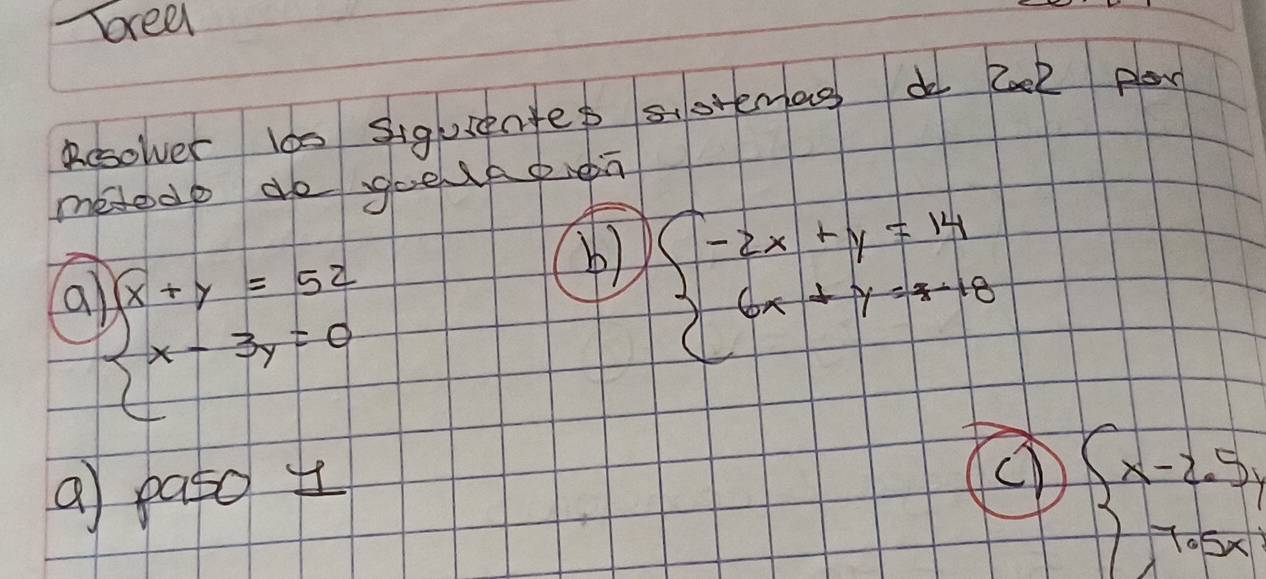 Tarea
Resolver los siguientes sistemas de 2x2 por
método de igualación
a) { x + y = 52
x - 3y = 0
b) { -2x + y = 14
6x + y = -18
a) paso 1
c) { x - 2.5y
7.5x